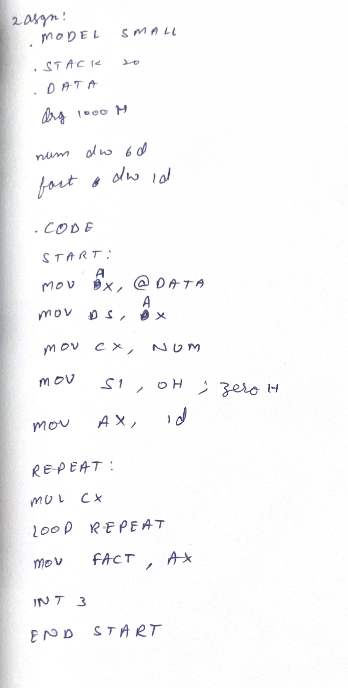 2asgn:
.MODEL SMALL
.STACK 20
.DATA
Org 1000 H
num dw 6d
fact dw 1d
.CODE
START:
MOV AX, @DATA
MOV DS, AX
MOV CX, NUM
MOV SI, 0H ; zero H
MOV AX, 1d
REPEAT:
MUL CX
LOOP REPEAT
MOV FACT, AX
INT 3
END START